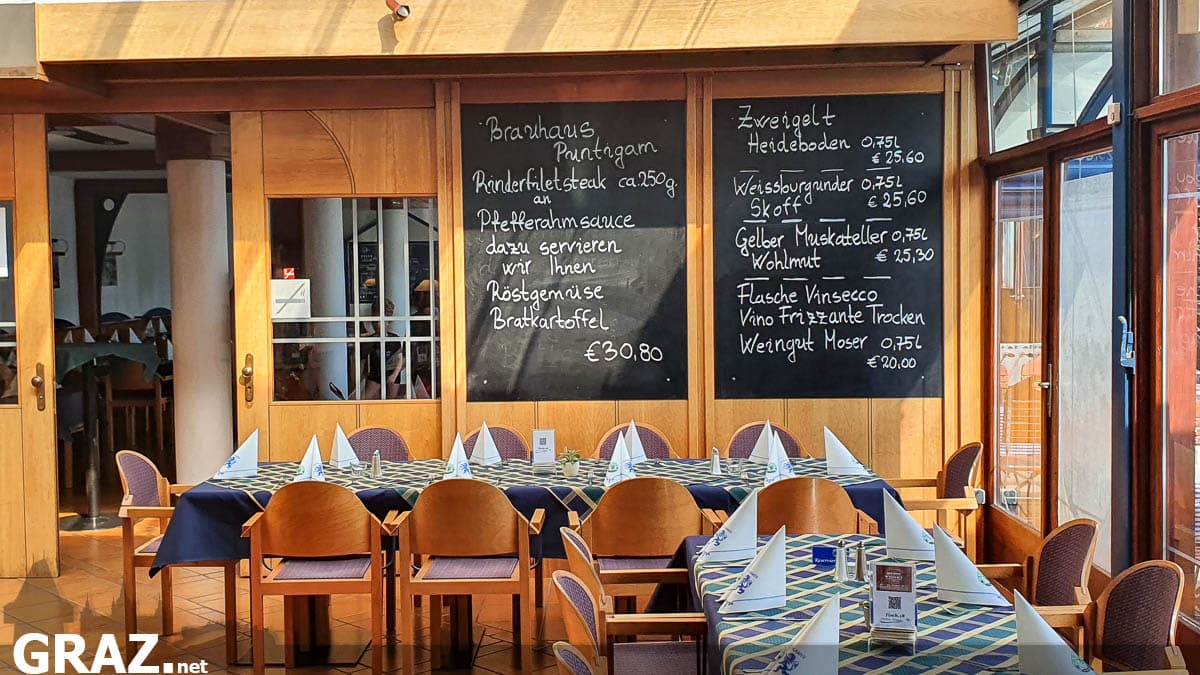 Brauhaus
Puntigam
Rinderfiletsteak ca.250g.
an
Pfefferrahmsauce
dazu servieren
wir Ihnen
Röstgemüse
Bratkartoffel
€30,80
Zweigelt
Heideboden 0,75l
€25,60
Weissburgunder 0,75l
Skoff €25,60
Gelber Muskateller 0,75l
Wohlmut €25,30
Flasche Vinsecco
Vino Frizzante Trocken
Weingut Moser 0,75l
€20,00
GRAZ.net